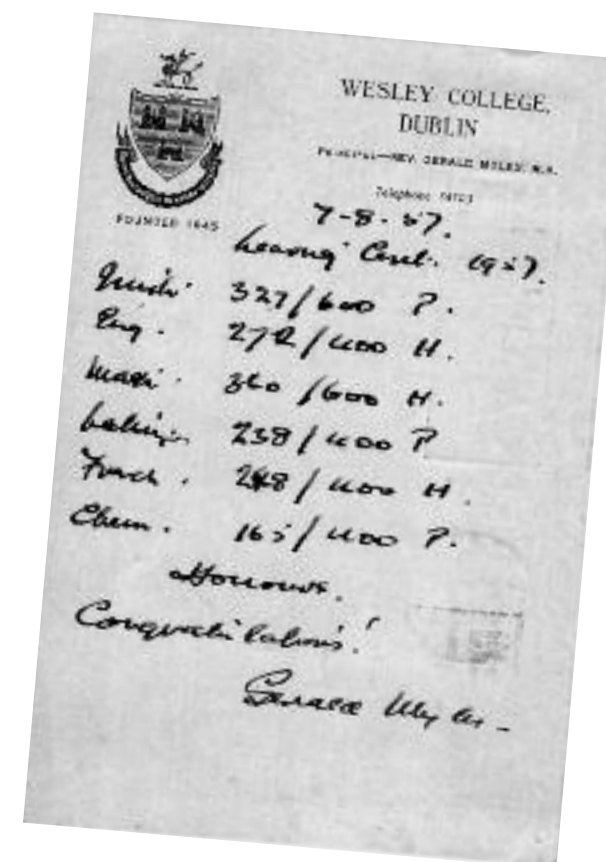 WESLEY COLLEGE,
DUBLIN
PRINCIPAL—REV. GERALD MYLES, M.A.
Telephone
FOUNDED 1845
7-8-57.
Leaving Cert. 1957.
Irish 327/600 P.
Eng. 272/400 H.
Math. 360/600 H.
Latin. 238/400 P
French. 248/400 H.
Chem. 165/400 P.
Honours.
Congratulations!
Gerald Myles